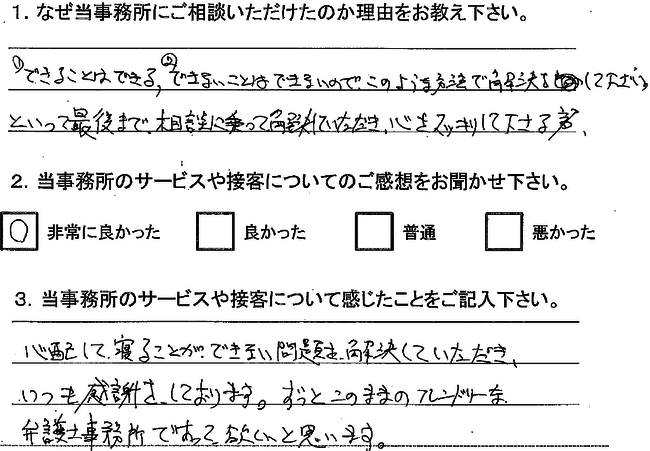 1. なぜ当事務所にご相談いただけたのか理由をお教え下さい。
①できることはできる,②できないことはできないので、このような方法で解決をして下さい。
といって最後まで、相談に乗って解決していただき、心をスッキリして下さる為、
2. 当事務所のサービスや接客についてのご感想をお聞かせ下さい。
○ 非常に良かった 良かった 普通 悪かった
3. 当事務所のサービスや接客について感じたことをご記入下さい。
心配して、寝ることができない問題を、解決していただき、
いつも感謝をしております。ずっとこのままのフレンドリーな
弁護士事務所であって欲しいと思います。